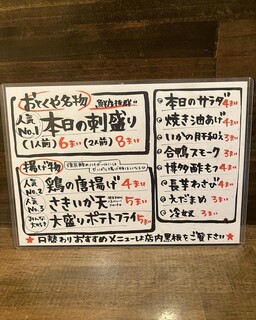 おとくや名物 鮮度抜群
人気No.1 本日の刺盛り
(1人前) 6まい (2人前) 8まい
揚げ物
人気No.2 鶏の唐揚げ 4まい
人気No.3 さきいか天 5まい
大盛りポテトフライ 5まい
@本日のサラダ 4まい
@焼き油あげ 4まい
@いかの肝和え 3まい
@合鴨スモーク 3まい
@博多酢もつ 4まい
@長芋わさび 4まい
@えだまめ 3まい
@冷奴 3まい
★日替わりおすすめメニューは店内黒板をご覧下さい★